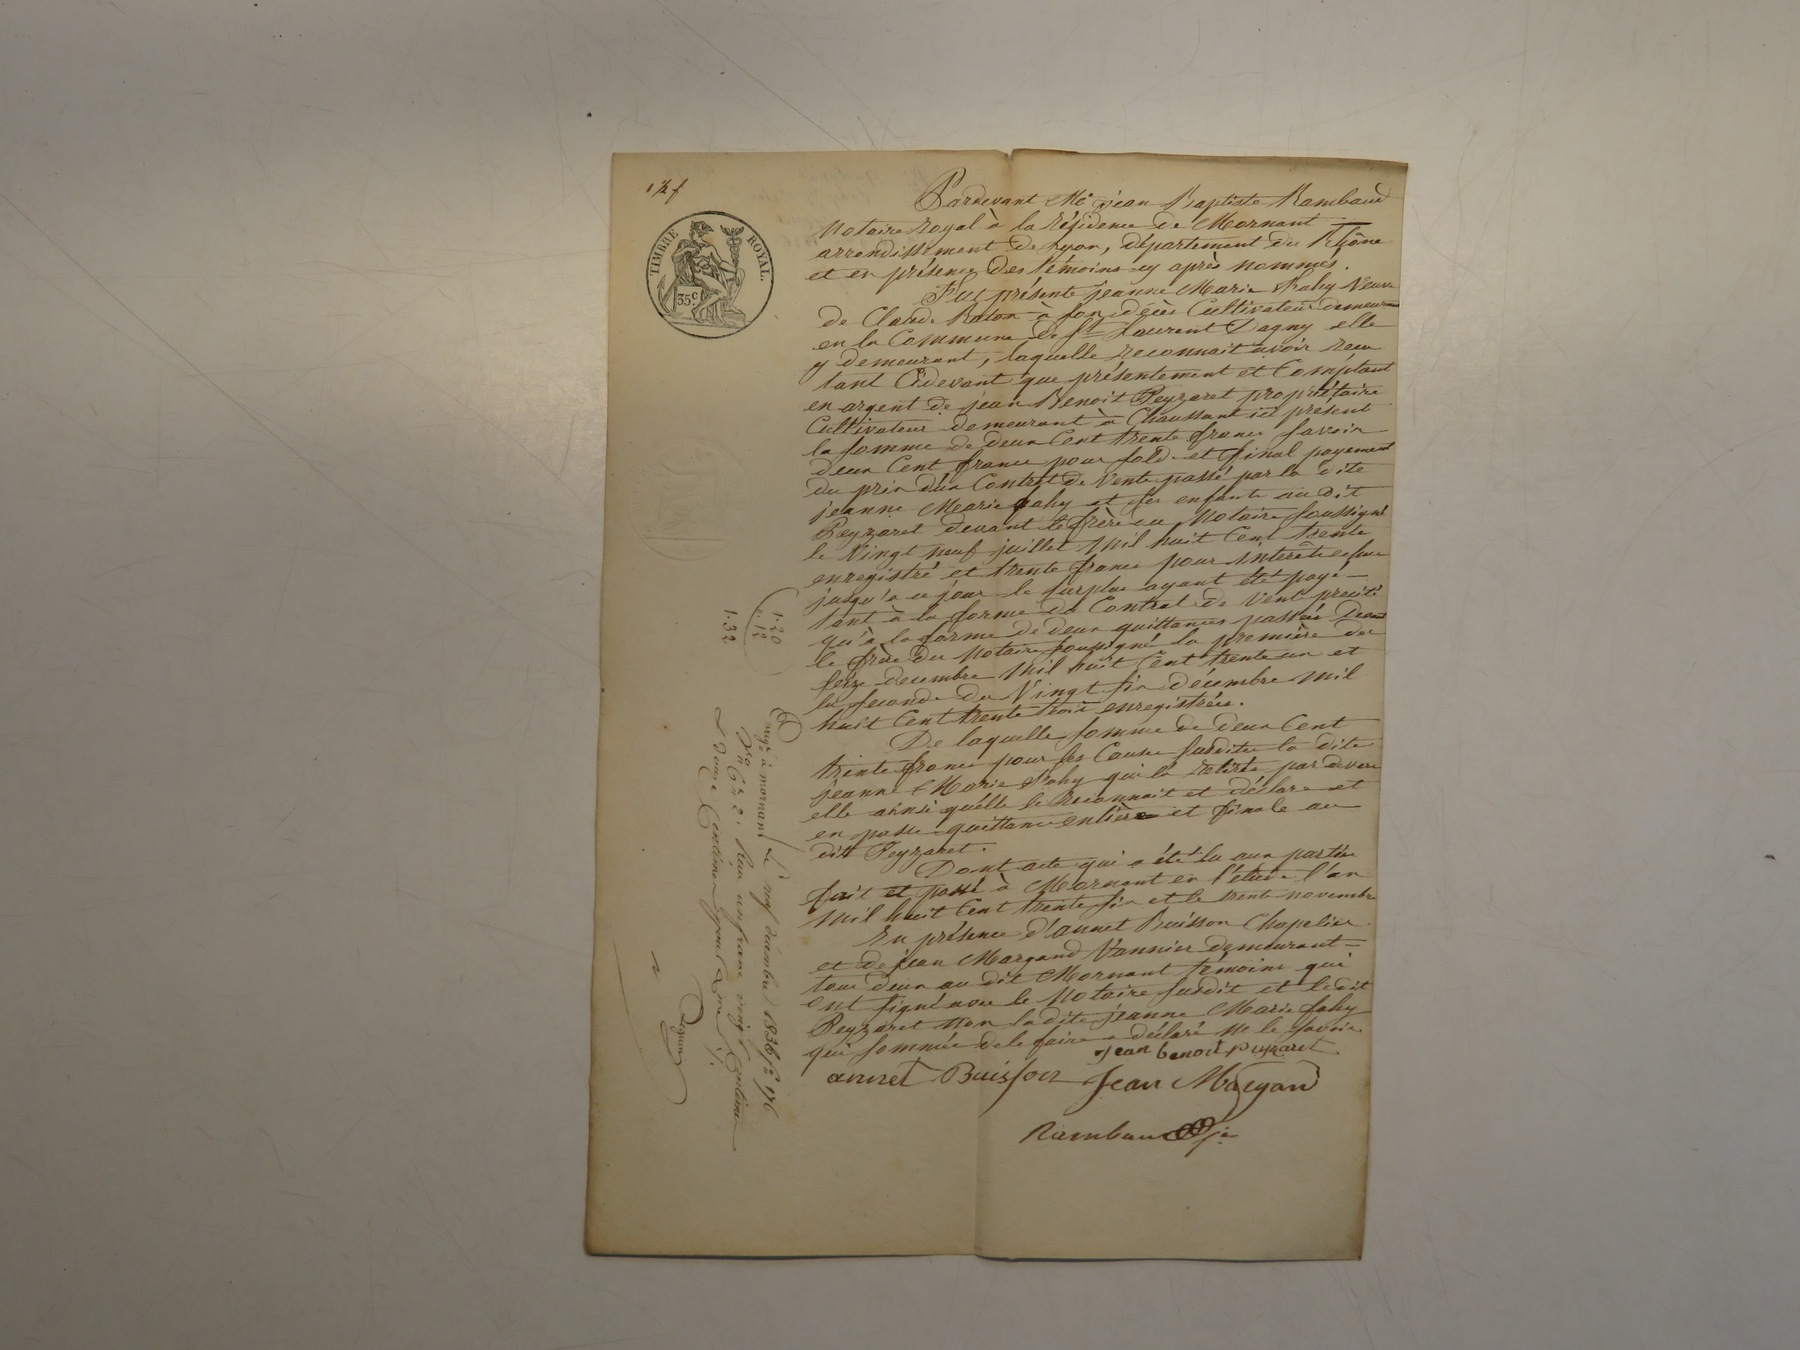 TIMBRE ROYAL
35c
Pardevant Me jean Baptiste Rambaud
Notaire Royal à la Résidence de Mornant
arrondissement de Lyon, département du Rhône
et en présence des témoins cy après nommés.
Fut présente jeanne Marie Fahy Veuve
de Claude Raton à son décès Cultivateur demeurant
en la Commune de St Laurent Dagny elle
y demeurant, laquelle reconnait avoir reçu
tant Cidevant que présentement et Comptant
en argent de jean Benoit Peyzaret propriétaire
Cultivateur demeurant à Chaussant ici présent
la somme de deux Cent trente francs savoir
deux Cent francs pour solde et final payement
du prix d'un Contrat de Vente passé par la dite
jeanne Marie fahy et ses enfants au dit
Peyzaret devant le frère du Notaire soussigné
le Vingt neuf juillet Mil huit Cent trente
enregistré et trente francs pour intérêts
jusqu'à ce jour le surplus ayant été payé
tant à la forme du Contrat de Vente précité
qu'à la forme de deux quittances passées devant
le frère du Notaire soussigné la première du
seize decembre Mil huit Cent trente un et
la seconde du Vingt six décembre Mil
huit Cent trente trois enregistrées.
De laquelle somme de deux Cent
trente francs pour les Causes susdites la dite
jeanne Marie Fahy qui la retirée par devers
elle ainsi quelle le reconnait et déclare et
en passe quittance entière et finale au
dit Peyzaret.
Dont acte qui a été lu aux parties
fait et passé à Mornant en l'étude l'an
Mil huit Cent trente six et le trente novembre
En présence d'annet Buisson Chapelier
et de jean Margand Vannier demeurant
tous deux au dit Mornant témoins qui
ont signé avec le Notaire susdit et le dit
Peyzaret non la dite jeanne Marie fahy
qui sommée de le faire a déclaré ne le savoir
jean benoit
annet Buisson Jean
Rambaud
1.20
12
1.32
Enregé à mornant Le neuf décembre 1836 fo 176
Reçu un franc vingt Centimes
douze Centimes